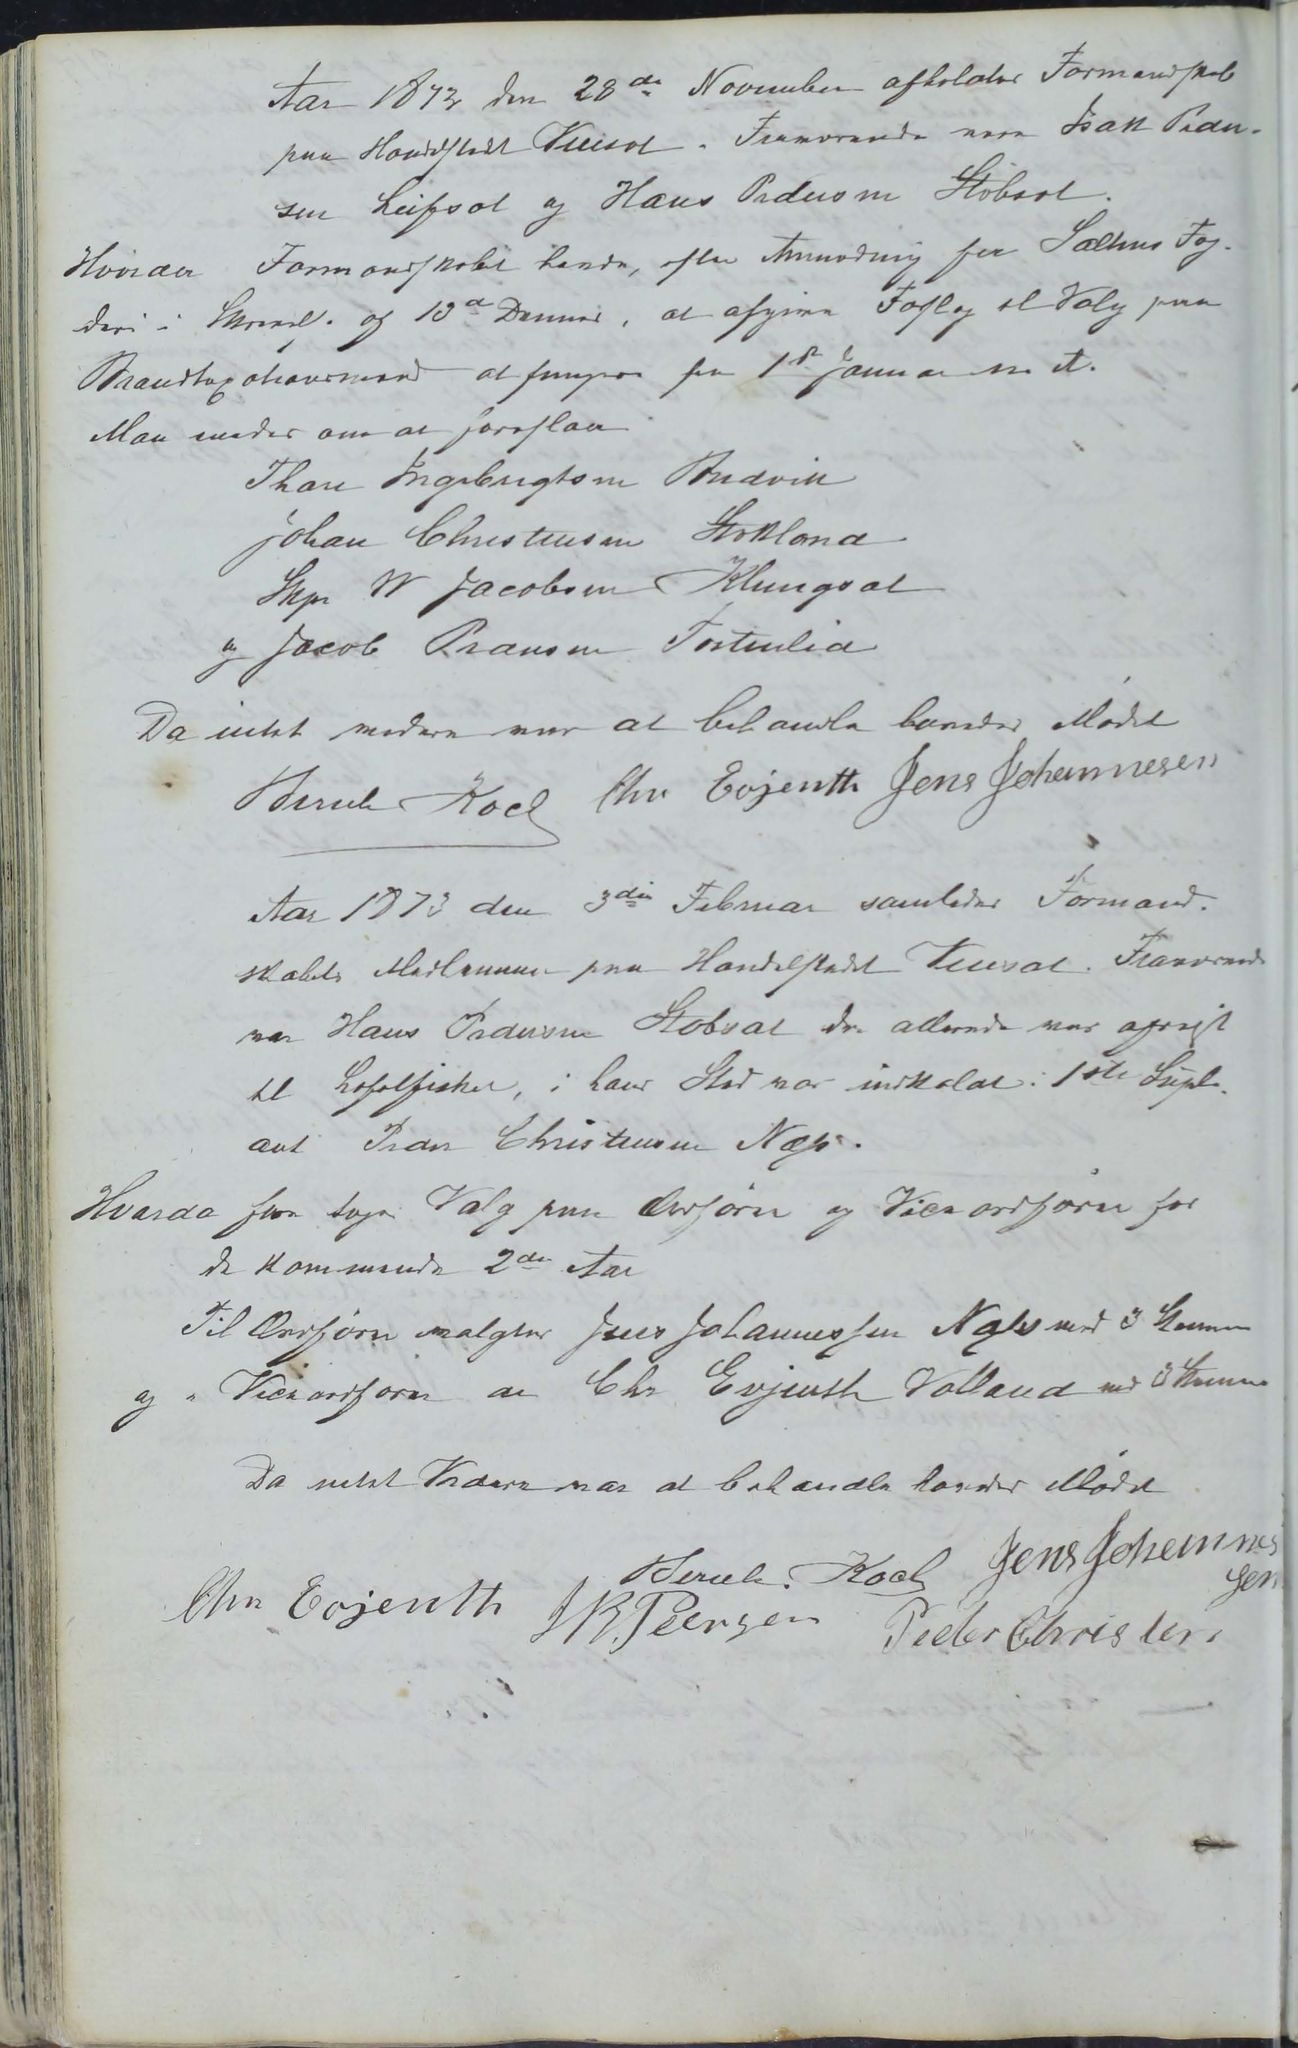 Aar 1872 den 28de November afholdtes Formandskab
paa Handelstedet Venset. Fraværende vare Isak Peder-
sen Leifset og Hans Pedersen Støbset.
Hvorda Formandskabet havde, efter Anmodning fra Saltens Fog-
deri i Skrivelse af 13de Dennes, at afgive Forslag til Valg paa
Brandtaxationsmænd at fungere fra 1ste Januar n. A.
Man enedes om at foreslaa
Thore Ingebrigtsen Budvik
Johan Christensen Stokland
Skpr W Jacobsen Klungset
og Jacob Pransen Tortenlid
Da intet videre var at behandle hævedes Mødet
Bernh. Koch Chr Evjenth Jens Johannesen
Aar 1873 den 3die Februar samledes Formand-
skabets Medlemmer paa Handelstedet Venset. Fraværende
var Hans Pedersen Støbset der allerede var afreist
til Lofotfisket, i hans Sted var indkaldt 1ste Suple-
ant Peder Christensen Næss.
Hvorda foretoges Valg paa Ordfører og Viceordfører for
de kommende 2de Aar
Til Ordfører valgtes Jens Johannessen Næss med 3 Stemmer
og " Viceordfører Chr Evjenth Volland med 3 Stemmer
Da intet Videre var at behandle hævedes Mødet
Bernh. Koch Jens Johannes
sen
Chr Evjenth J R. Peersen Peder Christens